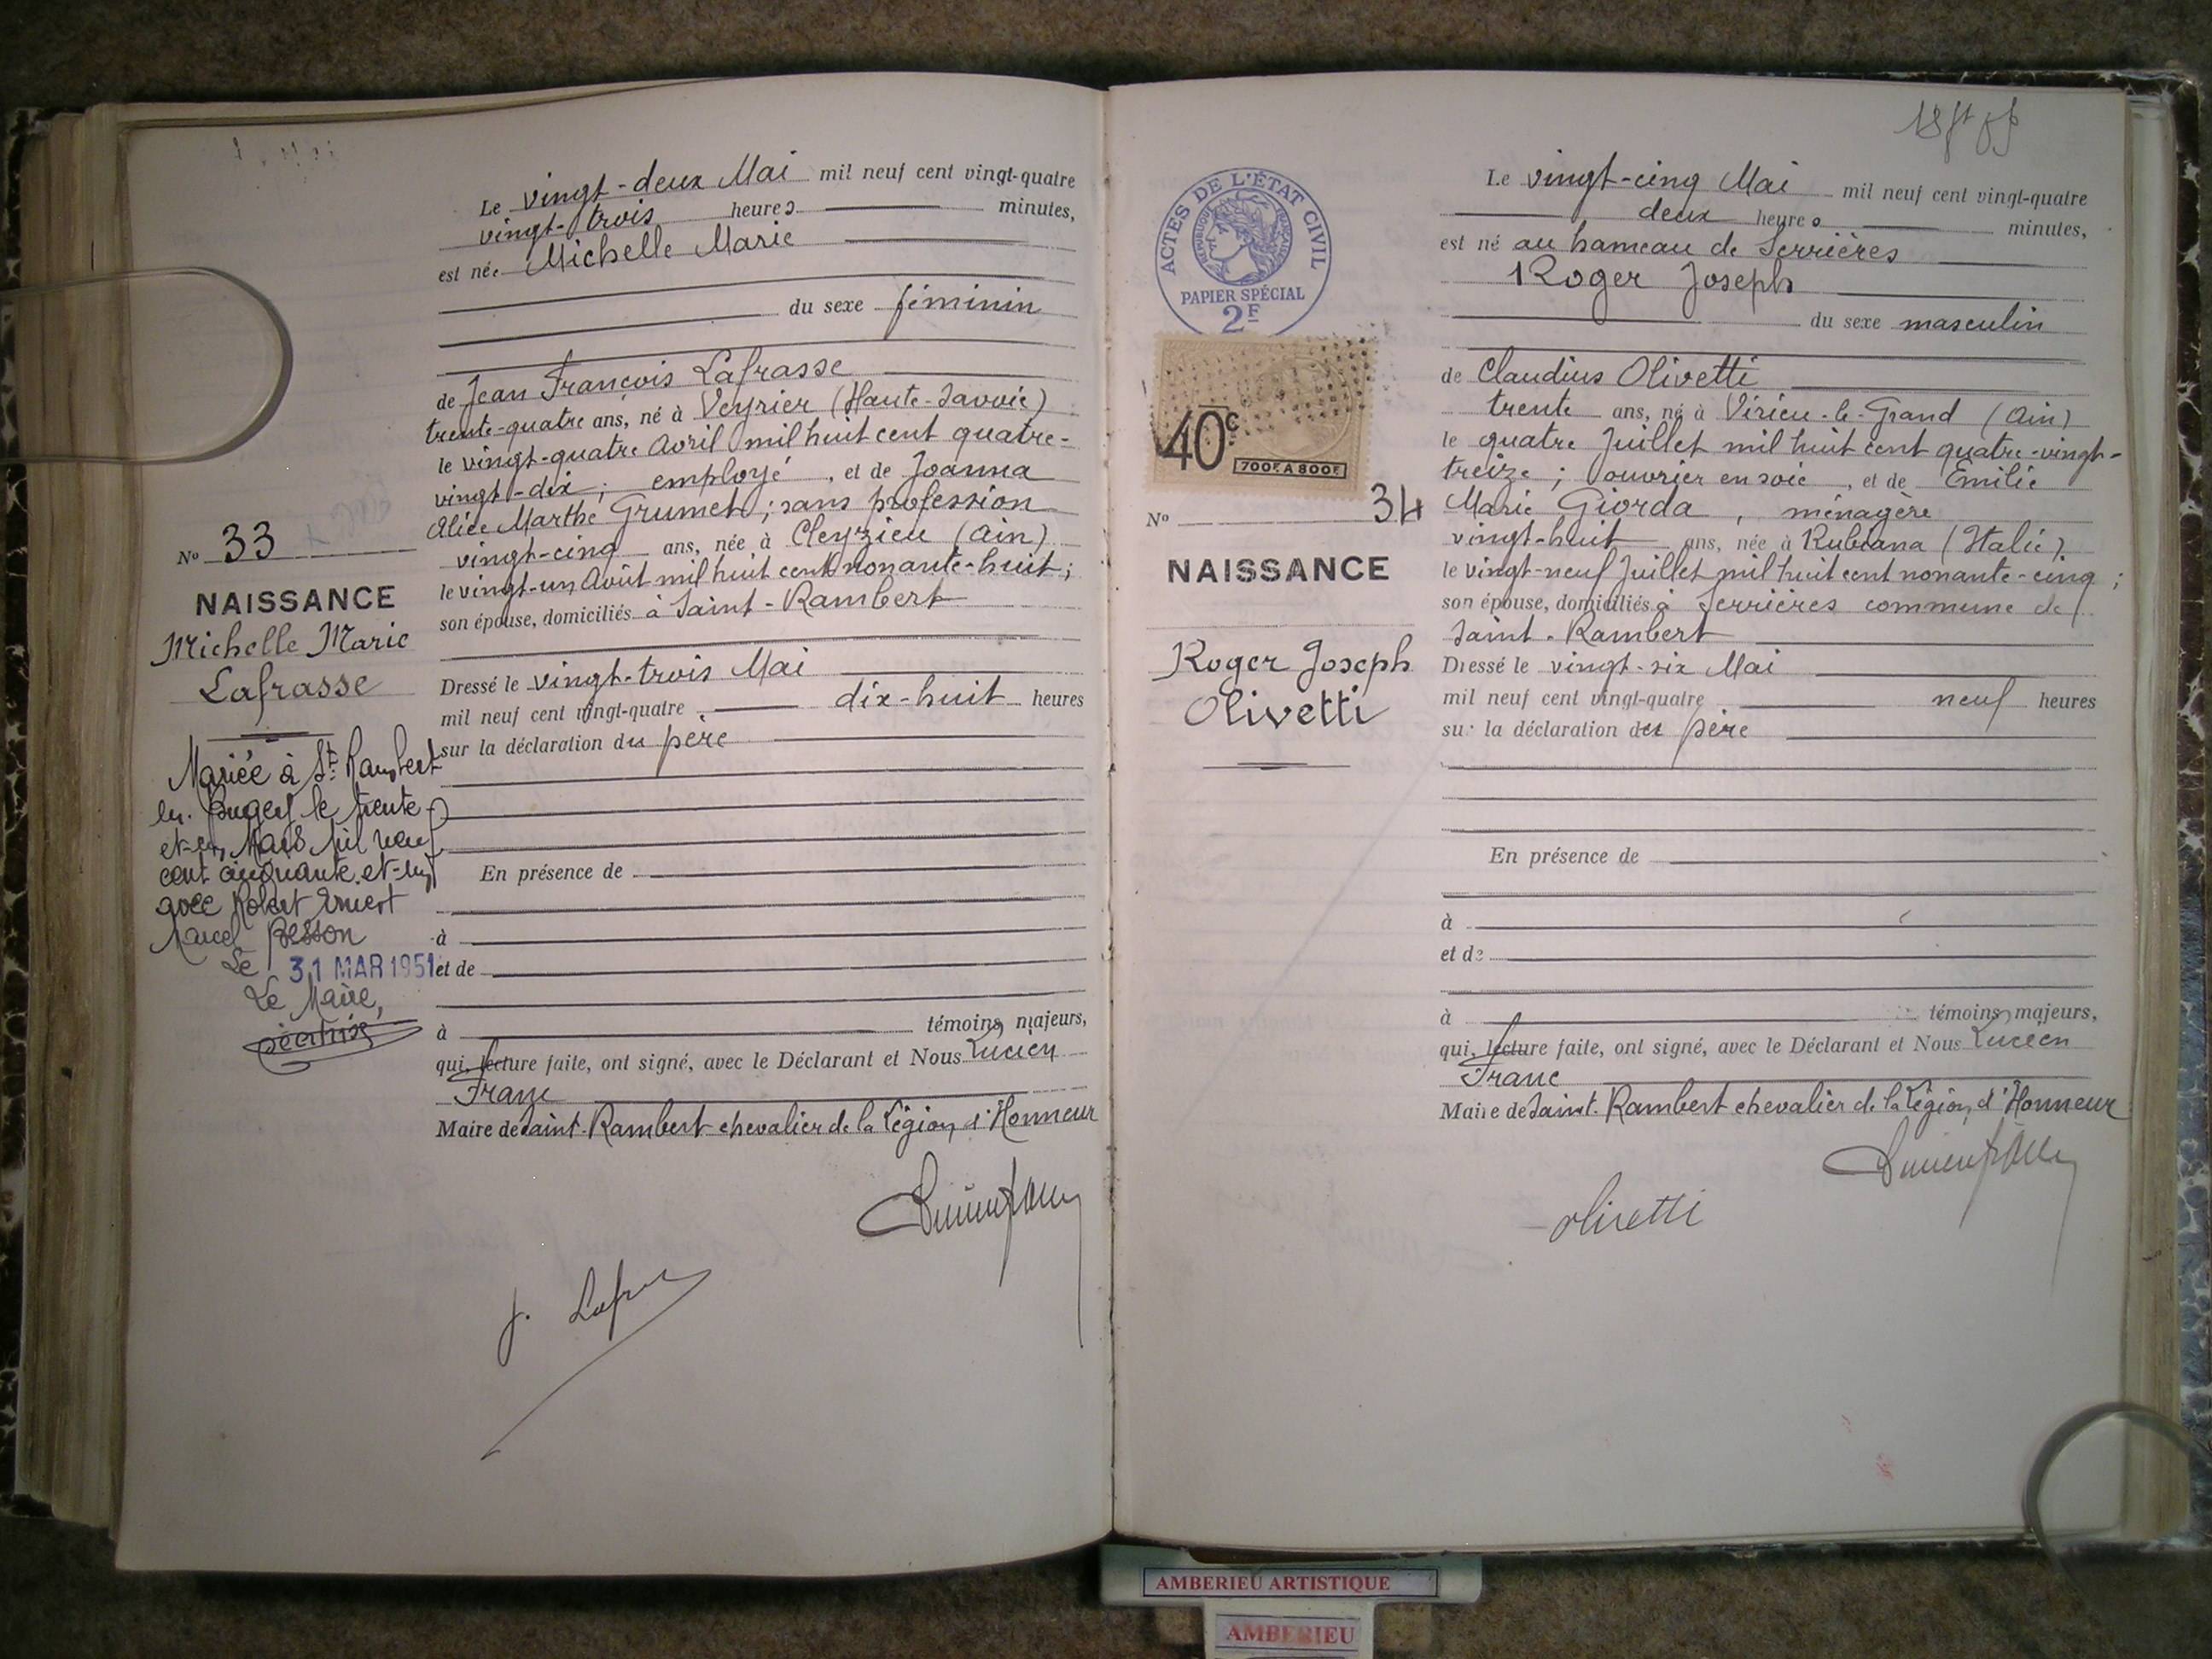 Le vingt-deux Mai mil neuf cent vingt-quatre
vingt-trois heures minutes,
est née Michelle Marie
du sexe féminin
de Jean François Lafrasse
trente-quatre ans, né à Veyrier (Haute-Savoie)
le vingt-quatre Avril mil huit cent quatre-
vingt-dix ; employé , et de Joanna
Alice Marthe Grumet ; sans profession
vingt-cinq ans, née à Cleyzieu (Ain)
le vingt-un Août mil huit cent nonante-huit ;
son épouse, domiciliés à Saint-Rambert
Dressé le vingt-trois Mai
mil neuf cent vingt-quatre , dix-huit heures
sur la déclaration du père
En présence de
à
et de
à témoins majeurs,
qui, lecture faite, ont signé, avec le Déclarant et Nous Lucien
Franc
Maire de Saint-Rambert chevalier de la Légion d'Honneur
J. Lafrasse
No 33
NAISSANCE
Michelle Marie
Lafrasse
Mariée à St. Rambert
en Bugey le trente
et-un Mars mil neuf
cent cinquante-et-un
avec Robert Ernest
Marcel Besson
Le 31 MAR 1951
Le Maire,
ACTES DE L'ÉTAT CIVIL
RÉPUBLIQUE FRANÇAISE
PAPIER SPÉCIAL
2F
40c
700F. A 800F.
No 34
NAISSANCE
Roger Joseph
Olivetti
Le vingt-cinq Mai mil neuf cent vingt-quatre
deux heures minutes,
est né au hameau de Serrières
Roger Joseph
du sexe masculin
de Claudius Olivetti
trente ans, né à Virieu-le-Grand (Ain)
le quatre Juillet mil huit cent quatre-vingt-
treize ; ouvrier en soie , et de Emilie
Marie Giorda , ménagère
vingt-huit ans, née à Rubiana (Italie)
le vingt-neuf Juillet mil huit cent nonante-cinq ;
son épouse, domiciliés à Serrières commune de
Saint-Rambert
Dressé le vingt-six Mai
mil neuf cent vingt-quatre neuf heures
sur la déclaration du père
En présence de
à
et de
à témoins majeurs,
qui, lecture faite, ont signé, avec le Déclarant et Nous Lucien
Franc
Maire de Saint-Rambert chevalier de la Légion d'Honneur
Olivetti
AMBERIEU ARTISTIQUE
AMBERIEU